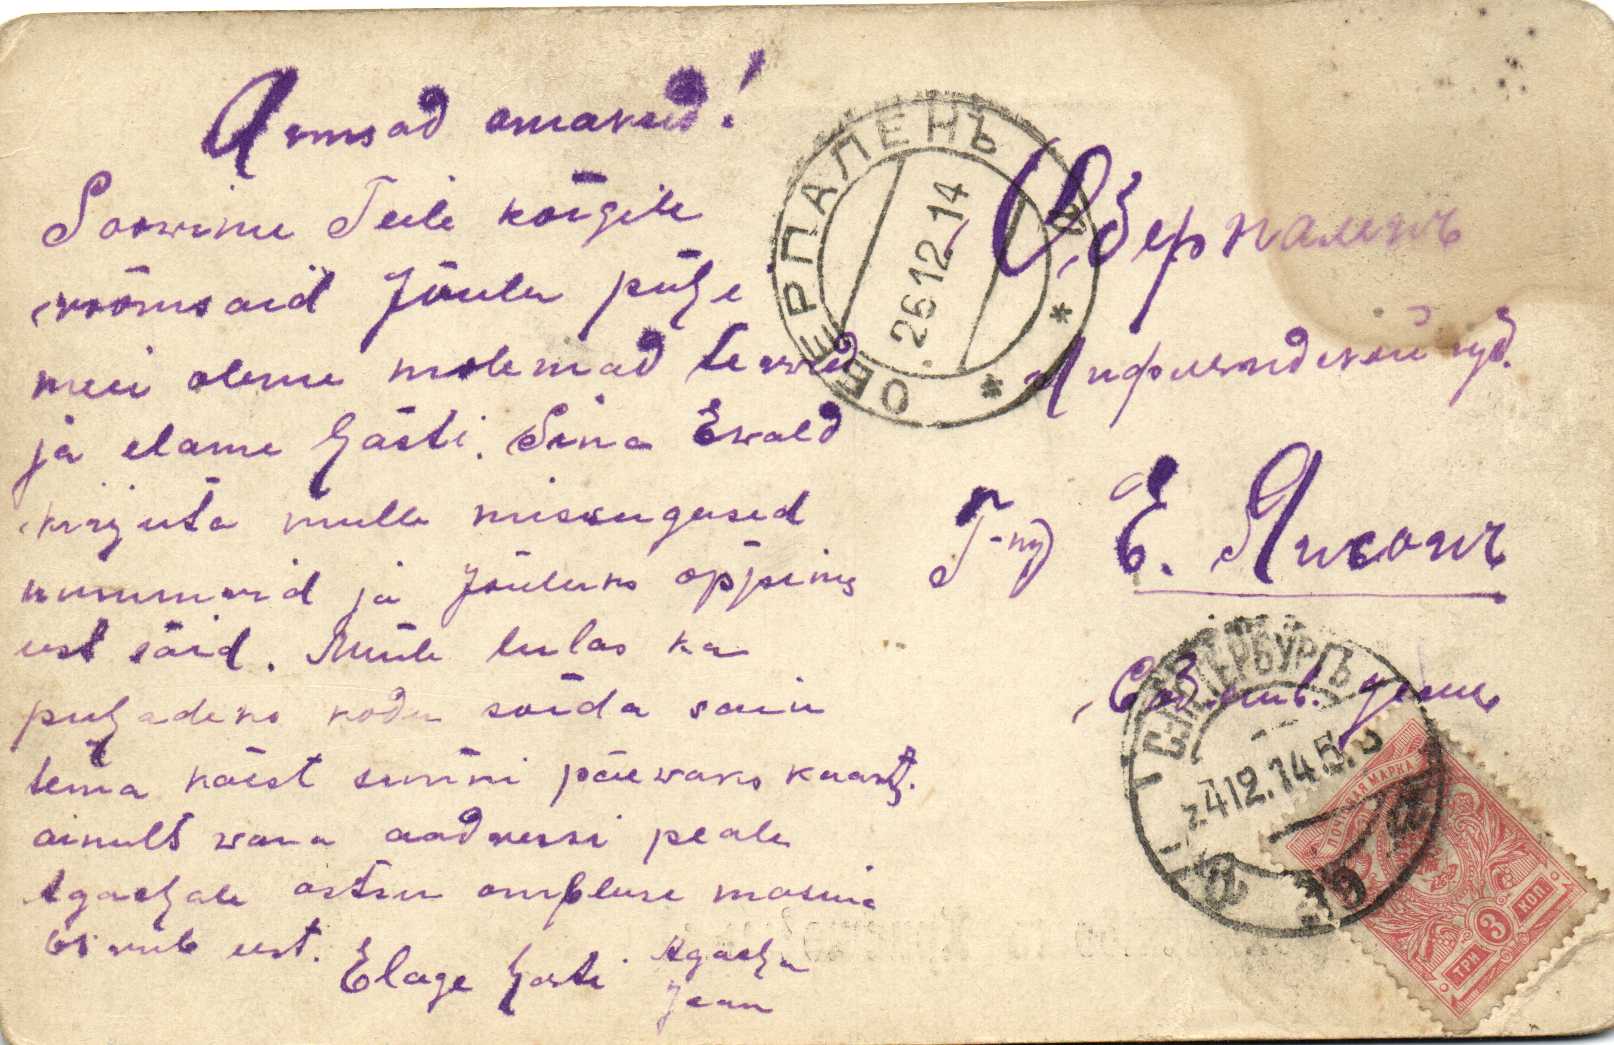 Armsad omaksed!
Soowime Teile kõigile
rõõmsaid Jõulu pühe
meie oleme molemad terwed
ja elame hästi. Sina Ewald
kirjuta mulle missugused
nummrid ja Jõuluks õppimg
ust said. Miile tulas ka
puhadeks kodu sõida sain
tema käest sünni päewaks kaart.
ainult wana aadressi peale
Agachale ostsu ombluse masina
65 rub. eest.
Elage hästi Agacha
Jean
ОБЕРПАЛЕНЪ
26.12.14
Оберпаленъ
Лифляндской губ.
Г-ну Е. Янсонъ
С.ПЕТЕРБУРГЪ
24.12.14.5
ПОЧТОВАЯ МАРКА
ТРИ 3 КОП